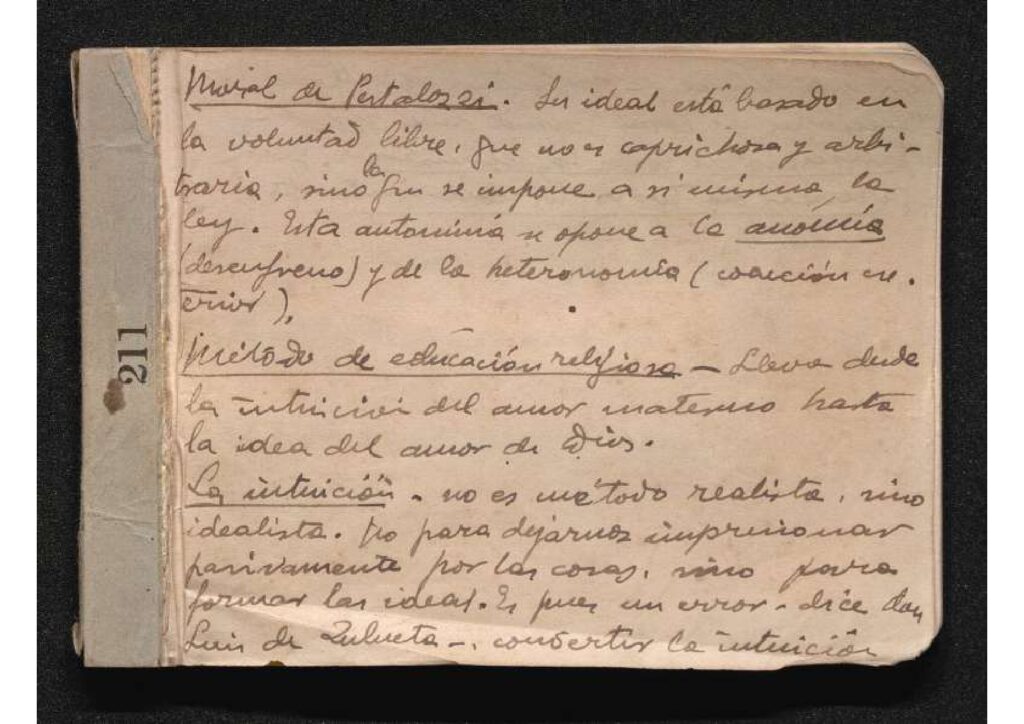 Moral de Pestalozzi. Su ideal está basado en
la voluntad libre, que no es caprichosa y arbi-
traria, sino la que se impone a si misma la
ley. Esta autonimia se opone a la anómia
(desenfreno) y de la heteronomía (coacción ex-
terior).
Método de educación religiosa - Lleva desde
la intuición del amor materno hasta
la idea del amor de Dios.
La intuición - no es método realista, sino
idealista. No para dejarnos impresionar
pasivamente por las cosas, sino para
formar las ideas. Es pues un error - dice don
Luis de Zulueta -, convertir la intuición
211